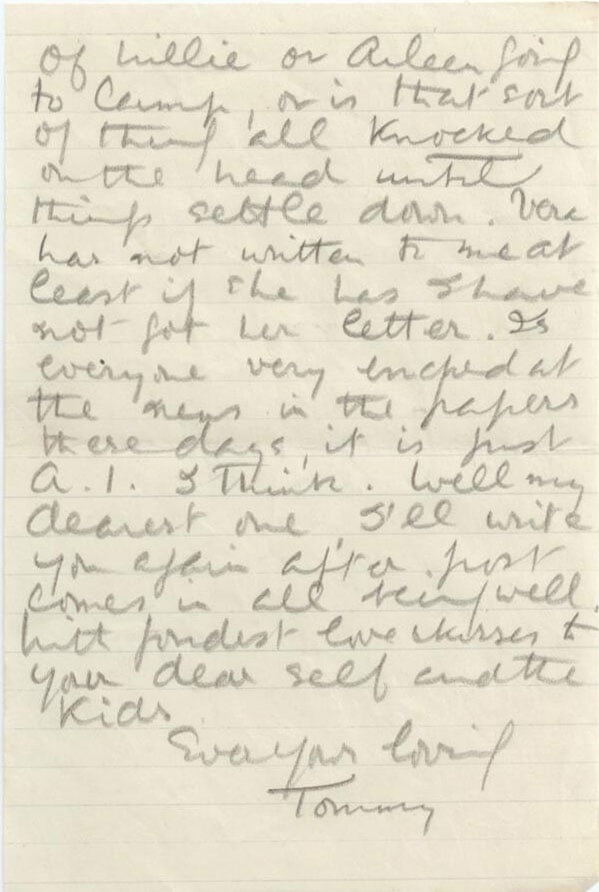 of Millie or Aileen going
to Camp, or is that sort
of thing all knocked
on the head until
things settle down. Vera
has not written to me at
least if she has I have
not got her letter. Is
everyone very bucked at
the news in the papers
these days, it is just
A.1. I think. Well my
dearest one, I'll write
you again after post
comes in all being well.
With fondest love & kisses to
your dear self and the
kids
Ever your loving
Tommy